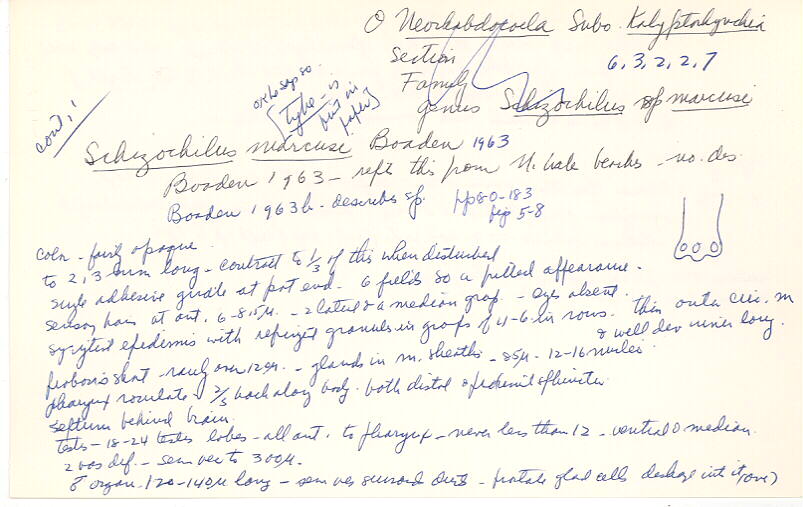 O Neorhabdocoela Subo. Kalyptorhynchia
Section
6,3,2,2,7
Family
genus Schizochilus sp marcusi
cont, '
ortho says so.
[type is
put in
paper]
Schizochilus marcusi Boaden 1963
Boaden 1963 - repts this from N. Wale beaches - no. des.
Boaden 1963b - describes sp. pp80-183
figs 5-8
Color - fairly opaque
to 2,3 mm long - contract to 1/3 of this when disturbed
single adhesive girdle at post end - 6 fields so a pitted appearance.
sensory hairs at ant. 6-8.5µ. - 2 lateral & a median group - eyes absent.
syncytial epidermis with refringent granules in groups of 4-6 in rows. thin outer circ. m
& well dev inner long.
proboscis short - rarely over 120µ. - glands in m. sheaths - 85µ - 12-16 nuclei
pharynx rosulate - 2/3 back along body - both distal & proximal sphincter
septum behind brain.
testes - 18-24 testes lobes - all ant. to pharynx - never less than 12 - ventral & median.
2 vas def. - sem ves to 300µ.
♂ organ - 120-140µ long - sem ves surround duct - prostate gland cells discharge into it (over)